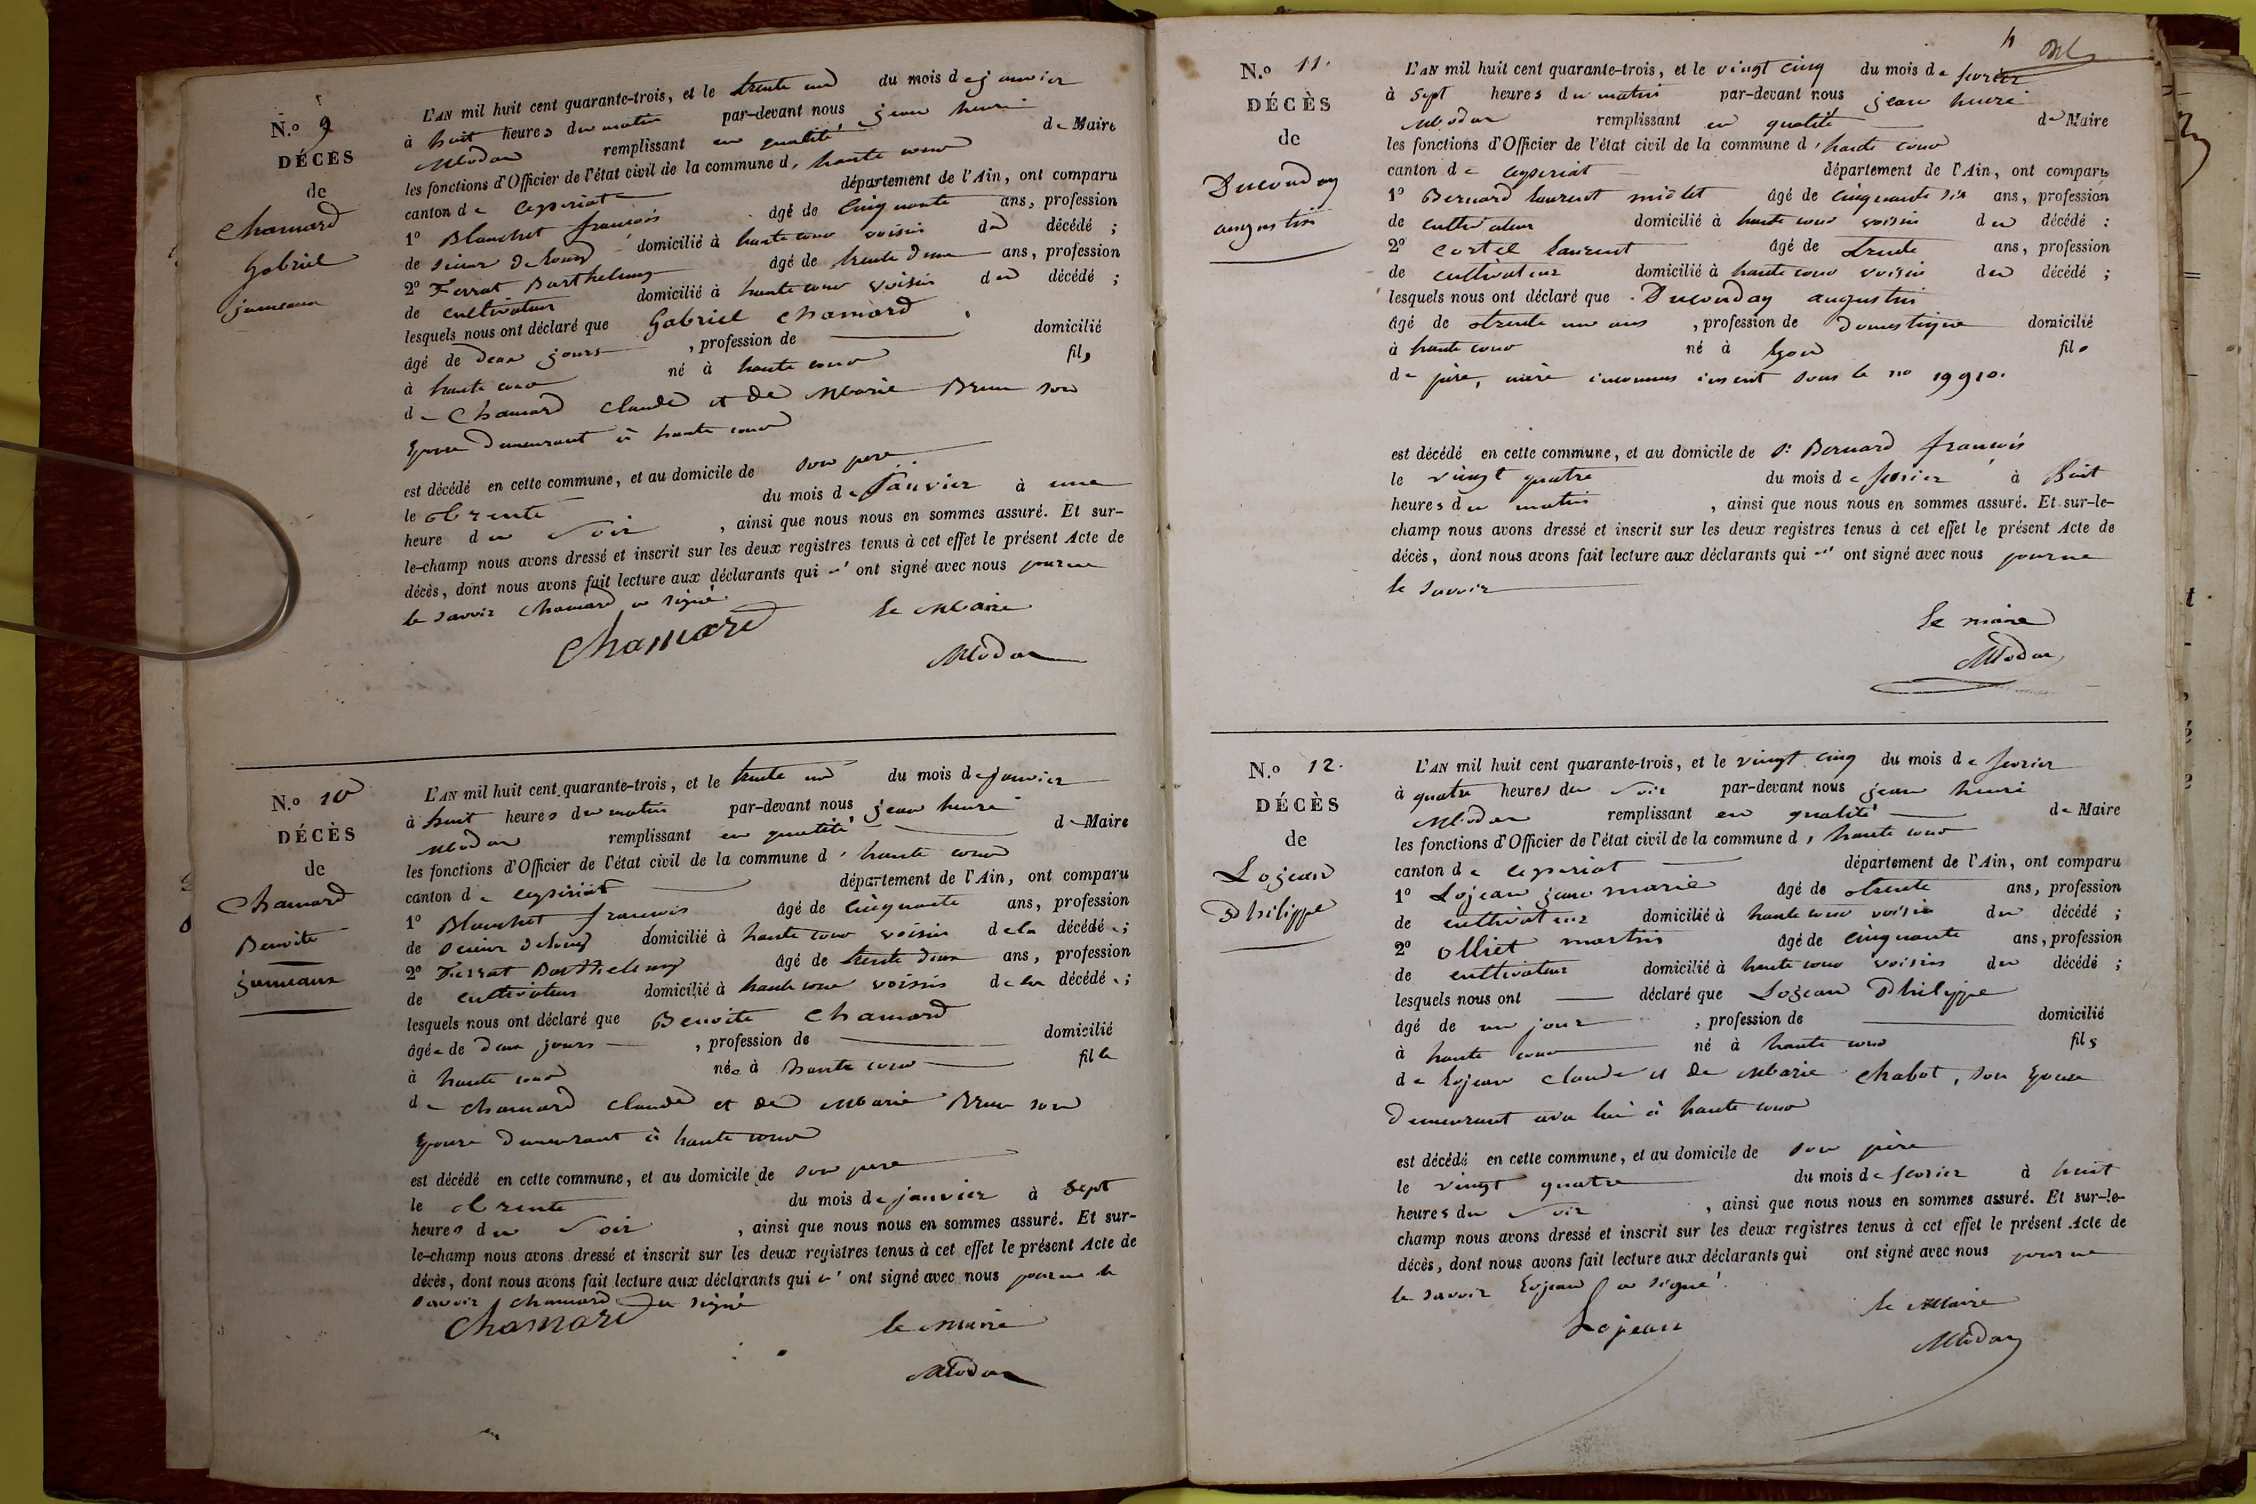 N.o 9
DÉCÈS
de
Chamard
Gabriel
jumeaux
L'AN mil huit cent quarante-trois, et le trente un du mois de janvier
à huit heures du matin par-devant nous jean henri
Modas remplissant en qualité de Maire
les fonctions d'Officier de l'état civil de la commune d'haute cour
canton de Ceyseriat département de l'Ain, ont comparu
1o Blanchet françois âgé de Cinquante ans, profession
de sieur de long domicilié à haute cour voisin du décédé ;
2o Ferrat Barthelemy âgé de trente deux ans, profession
de cultivateur domicilié à haute cour voisin du décédé ;
lesquels nous ont déclaré que Gabriel Chamard
âgé de deux jours , profession de domicilié
à haute cour né à haute cour fils
de Chamard Claude et de Marie Brun son
Epouse demeurant à haute cour
est décédé en cette commune, et au domicile de son pere
le trente du mois de Janvier à une
heure du soir , ainsi que nous nous en sommes assuré. Et sur-
le-champ nous avons dressé et inscrit sur les deux registres tenus à cet effet le présent Acte de
décès, dont nous avons fait lecture aux déclarants qui n' ont signé avec nous pour ne
le savoir Chamard a signé
Chamard
le Maire
Modas
N.o 10
DÉCÈS
de
Chamard
Benoite
jumeaux
L'AN mil huit cent quarante-trois, et le trente un du mois de janvier
à huit heures du matin par-devant nous jean henri
Modas remplissant en qualité de Maire
les fonctions d'Officier de l'état civil de la commune d'haute cour
canton de Ceyseriat département de l'Ain, ont comparu
1o Blanchet francois âgé de Cinquante ans, profession
de sieur de long domicilié à haute cour voisin de la décédée ;
2o Ferrat Barthelemy âgé de trente deux ans, profession
de cultivateur domicilié à haute cour voisin de la décédée ;
lesquels nous ont déclaré que Benoite Chamard
âgée de deux jours , profession de domicilié
à haute cour née à haute cour fille
de Chamard Claude et de Marie Brun son
Epouse demeurant à haute cour
est décédé en cette commune, et au domicile de son pere
le trente du mois de janvier à sept
heures du soir , ainsi que nous nous en sommes assuré. Et sur-
le-champ nous avons dressé et inscrit sur les deux registres tenus à cet effet le présent Acte de
décès, dont nous avons fait lecture aux déclarants qui n' ont signé avec nous pour ne le
savoir Chamard a signé
Chamard
le Maire
Modas
N.o 11.
DÉCÈS
de
Ducurday
augustin
4
L'AN mil huit cent quarante-trois, et le vingt cinq du mois de fevrier
à Sept heures du matin par-devant nous jean henri
Modas remplissant en qualité de Maire
les fonctions d'Officier de l'état civil de la commune d'haute cour
canton de Ceyseriat département de l'Ain, ont comparu
1o Bernard laurent miolet âgé de cinquante six ans, profession
de cultivateur domicilié à haute cour voisin du décédé :
2o Cortel laurent âgé de trente ans, profession
de cultivateur domicilié à haute cour voisin du décédé ;
lesquels nous ont déclaré que Ducurday augustin
âgé de trente un ans , profession de domestique domicilié
à haute cour né à Lyon fils
de père, mère inconnus inscrit sous le no 19910.
est décédé en cette commune, et au domicile de Sr Bernard françois
le vingt quatre du mois de fevrier à huit
heures du matin , ainsi que nous nous en sommes assuré. Et sur-le-
champ nous avons dressé et inscrit sur les deux registres tenus à cet effet le présent Acte de
décès, dont nous avons fait lecture aux déclarants qui n' ont signé avec nous pour ne
le savoir
le maire
Modas
N.o 12.
DÉCÈS
de
Lojean
Philippe
L'AN mil huit cent quarante-trois, et le vingt cinq du mois de fevrier
à quatre heures du soir par-devant nous jean henri
Modas remplissant en qualité de Maire
les fonctions d'Officier de l'état civil de la commune d'haute cour
canton de Ceyseriat département de l'Ain, ont comparu
1o Lojean jean marie âgé de trente ans, profession
de cultivateur domicilié à haute cour voisin du décédé ;
2o olliet martin âgé de cinquante ans, profession
de cultivateur domicilié à haute cour voisin du décédé ;
lesquels nous ont déclaré que Lojean Philippe
âgé de un jour , profession de domicilié
à haute cour né à haute cour fils
de Lojean Claude et de Marie Chabot, son Epouse
demeurant avec lui à haute cour
est décédé en cette commune, et au domicile de son père
le vingt quatre du mois de fevrier à huit
heures du soir , ainsi que nous nous en sommes assuré. Et sur-le-
champ nous avons dressé et inscrit sur les deux registres tenus à cet effet le présent Acte de
décès, dont nous avons fait lecture aux déclarants qui ont signé avec nous pour ne
le savoir Lojean a signé.
Lojean
le Maire
Modas